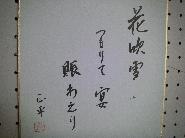 花吹雪
つもりて宴
賑わえり
正平